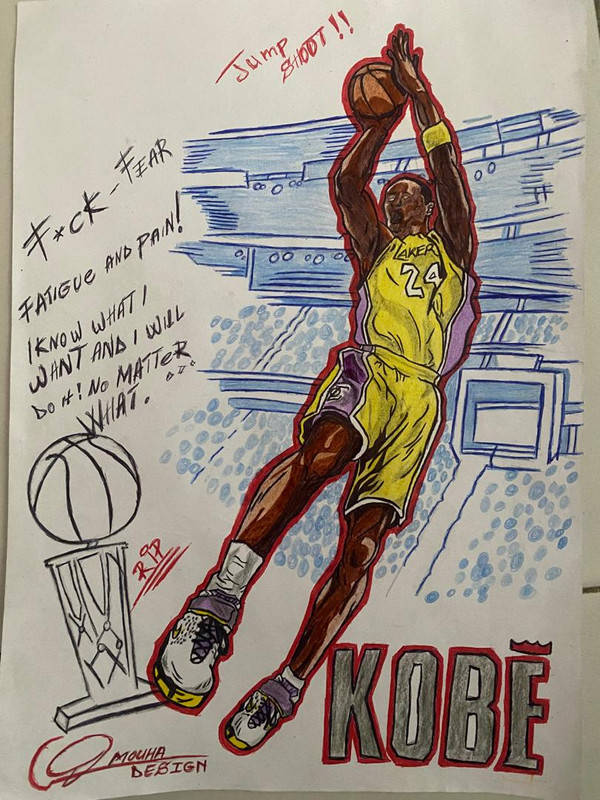 Jump
SHOOT!!
F*CK-FEAR
FATIGUE AND PAIN!
I KNOW WHAT I
WANT AND I WILL
DO IT! NO MATTER
WHAT. ...
LAKERS
24
RIP
KOBE
MOUHA
DESIGN